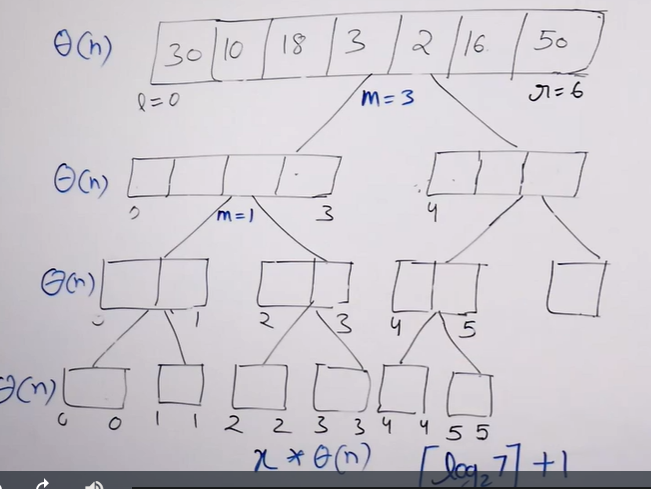 θ(n) 30 10 18 3 2 16 50
l=0 m=3 r=6
θ(n)
0 m=1 3 4
θ(n)
0 1 2 3 4 5
θ(n)
0 0 1 1 2 2 3 3 4 4 5 5
x * θ(n) ⌈log₂7⌉ + 1